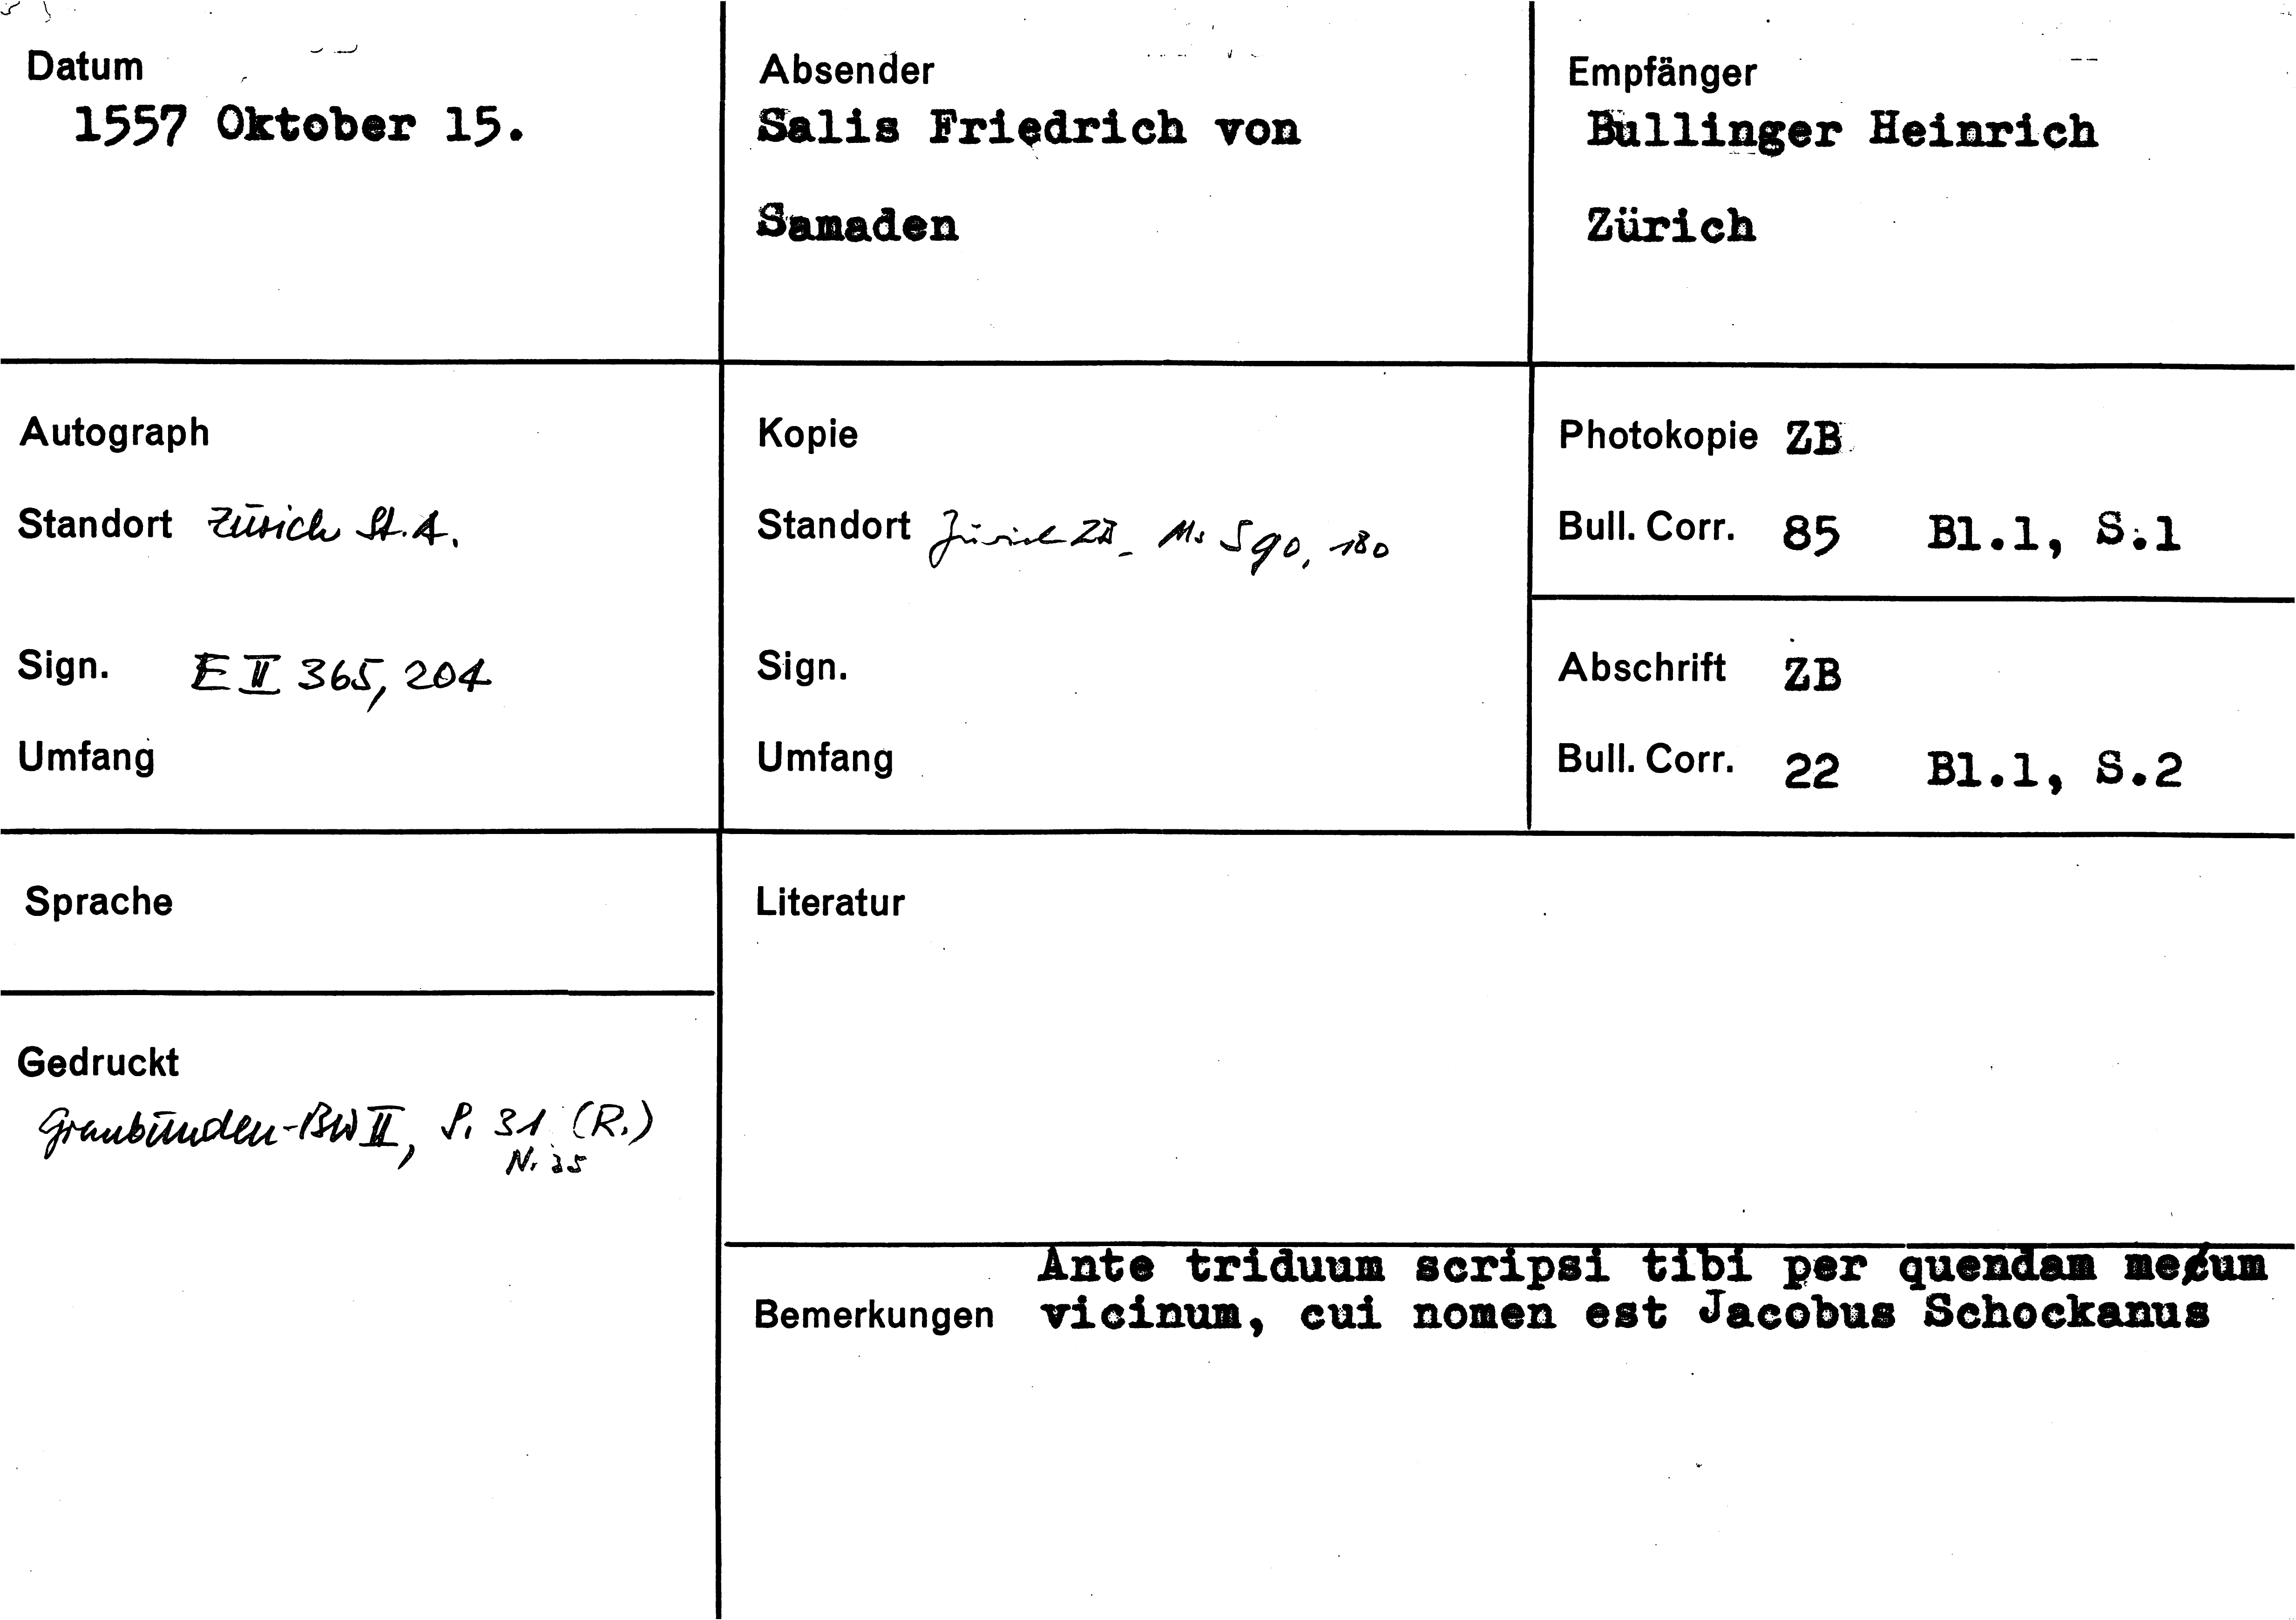 Datum
1557 Oktober 15.
Absender
Salis Friedrich von
Samaden
Empfänger
Bullinger Heinrich
Zürich
Autograph
Standort Zürich St. A.
Sign. E II 365, 204
Umfang
Kopie
Standort Zürich ZB_ Ms S 90, 180
Sign.
Umfang
Photokopie ZB
Bull. Corr. 85 Bl.1, S.1
Abschrift ZB
Bull. Corr. 22 Bl.1, S.2
Sprache
Gedruckt
Graubünden-BW II, S. 31 (R.)
Nr. 35
Literatur
Bemerkungen
Ante triduum scripsi tibi per quendam meum
vicinum, cui nomen est Jacobus Schockanus